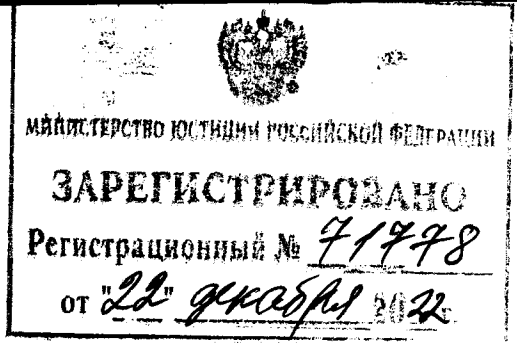 МИНИСТЕРСТВО ЮСТИЦИИ РОССИЙСКОЙ ФЕДЕРАЦИИ
ЗАРЕГИСТРИРОВАНО
Регистрационный № 71778
от "22" декабря 2022г.